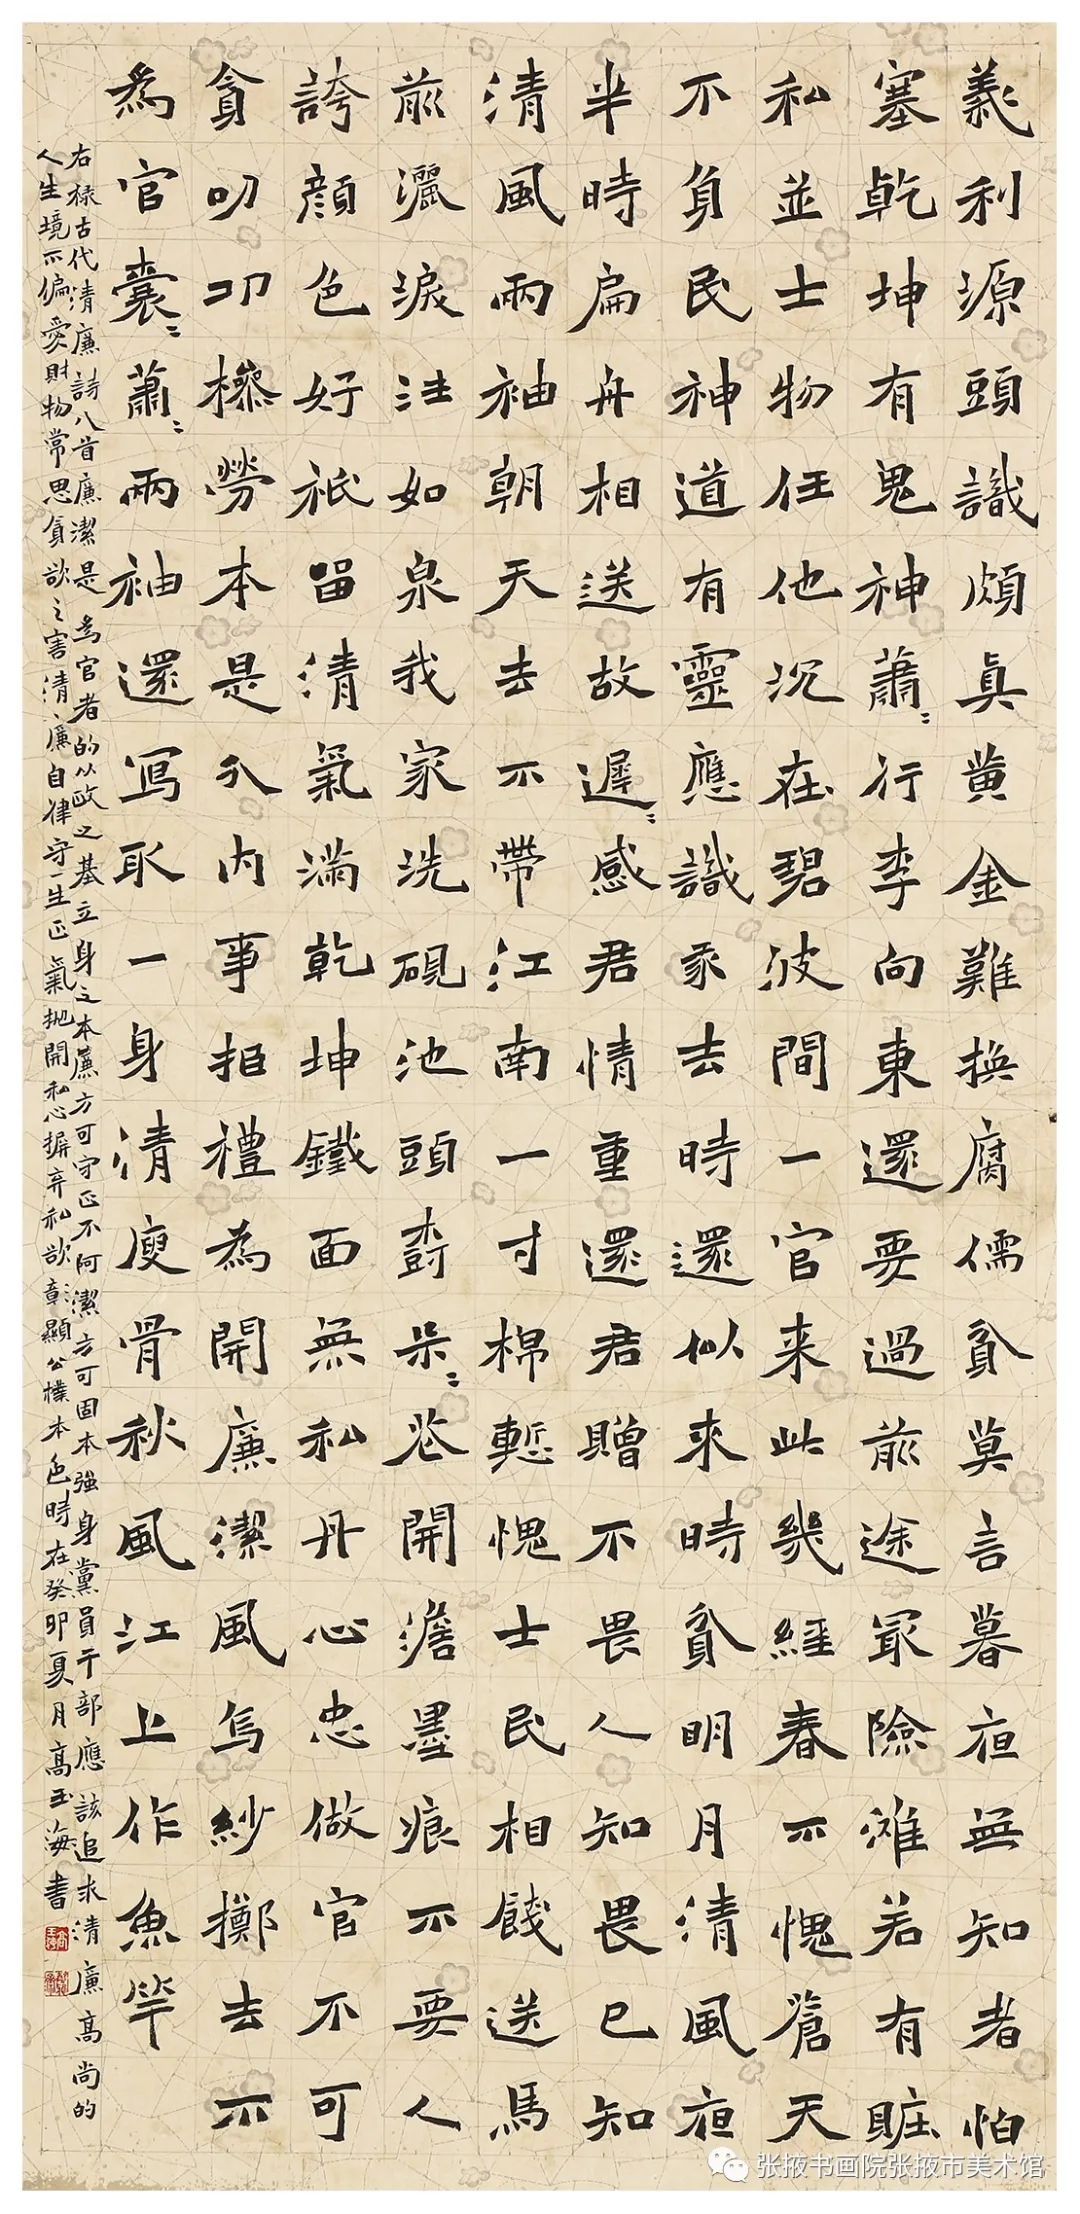 義利源頭識頗真黄金難換腐儒貧莫言暮夜無知者怕
塞乾坤有鬼神蕭〻行李向東還要過前途最險灘若有贓
私並士物任他沉在碧波間一官来此幾經春不愧蒼天
不負民神道有靈應識我去時還似來時貧明月清風夜
半時扁舟相送故遲〻感君情重還君贈不畏人知畏己知
清風兩袖朝天去不帶江南一寸棉慙愧士民相餞送馬
前灑淚注如泉我家洗硯池頭樹朵〻花開澹墨痕不要人
誇顔色好祗留清氣滿乾坤鐵面無私丹心忠做官不可
貪叨功操勞本是分内事拒禮為開廉潔風烏紗擲去不
為官囊〻蕭〻兩袖還寫取一身清廋骨秋風江上作魚竿
右録古代清廉詩八首廉潔是為官者的从政之基立身之本廉方可守正不阿潔方可固本強身黨員干部應該追求清廉高尚的
人生境不偏愛財物常思貪欲之害清廉自律守一生正氣抛開私心摒弃私欲彰顯公樸本色時在癸卯夏月高玉海書
张掖书画院张掖市美术馆